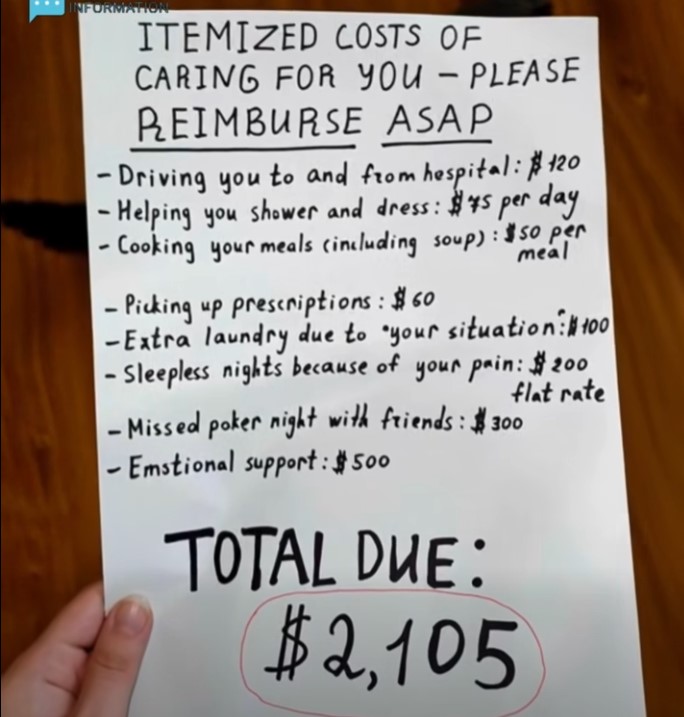 INFORMATION
ITEMIZED COSTS OF
CARING FOR YOU – PLEASE
REIMBURSE ASAP
- Driving you to and from hospital: $120
- Helping you shower and dress: $75 per day
- Cooking your meals (including soup): $50 per
meal
- Picking up prescriptions: $60
- Extra laundry due to "your situation": $100
- Sleepless nights because of your pain: $200
flat rate
- Missed poker night with friends: $300
- Emstional support: $500
TOTAL DUE:
$2,105